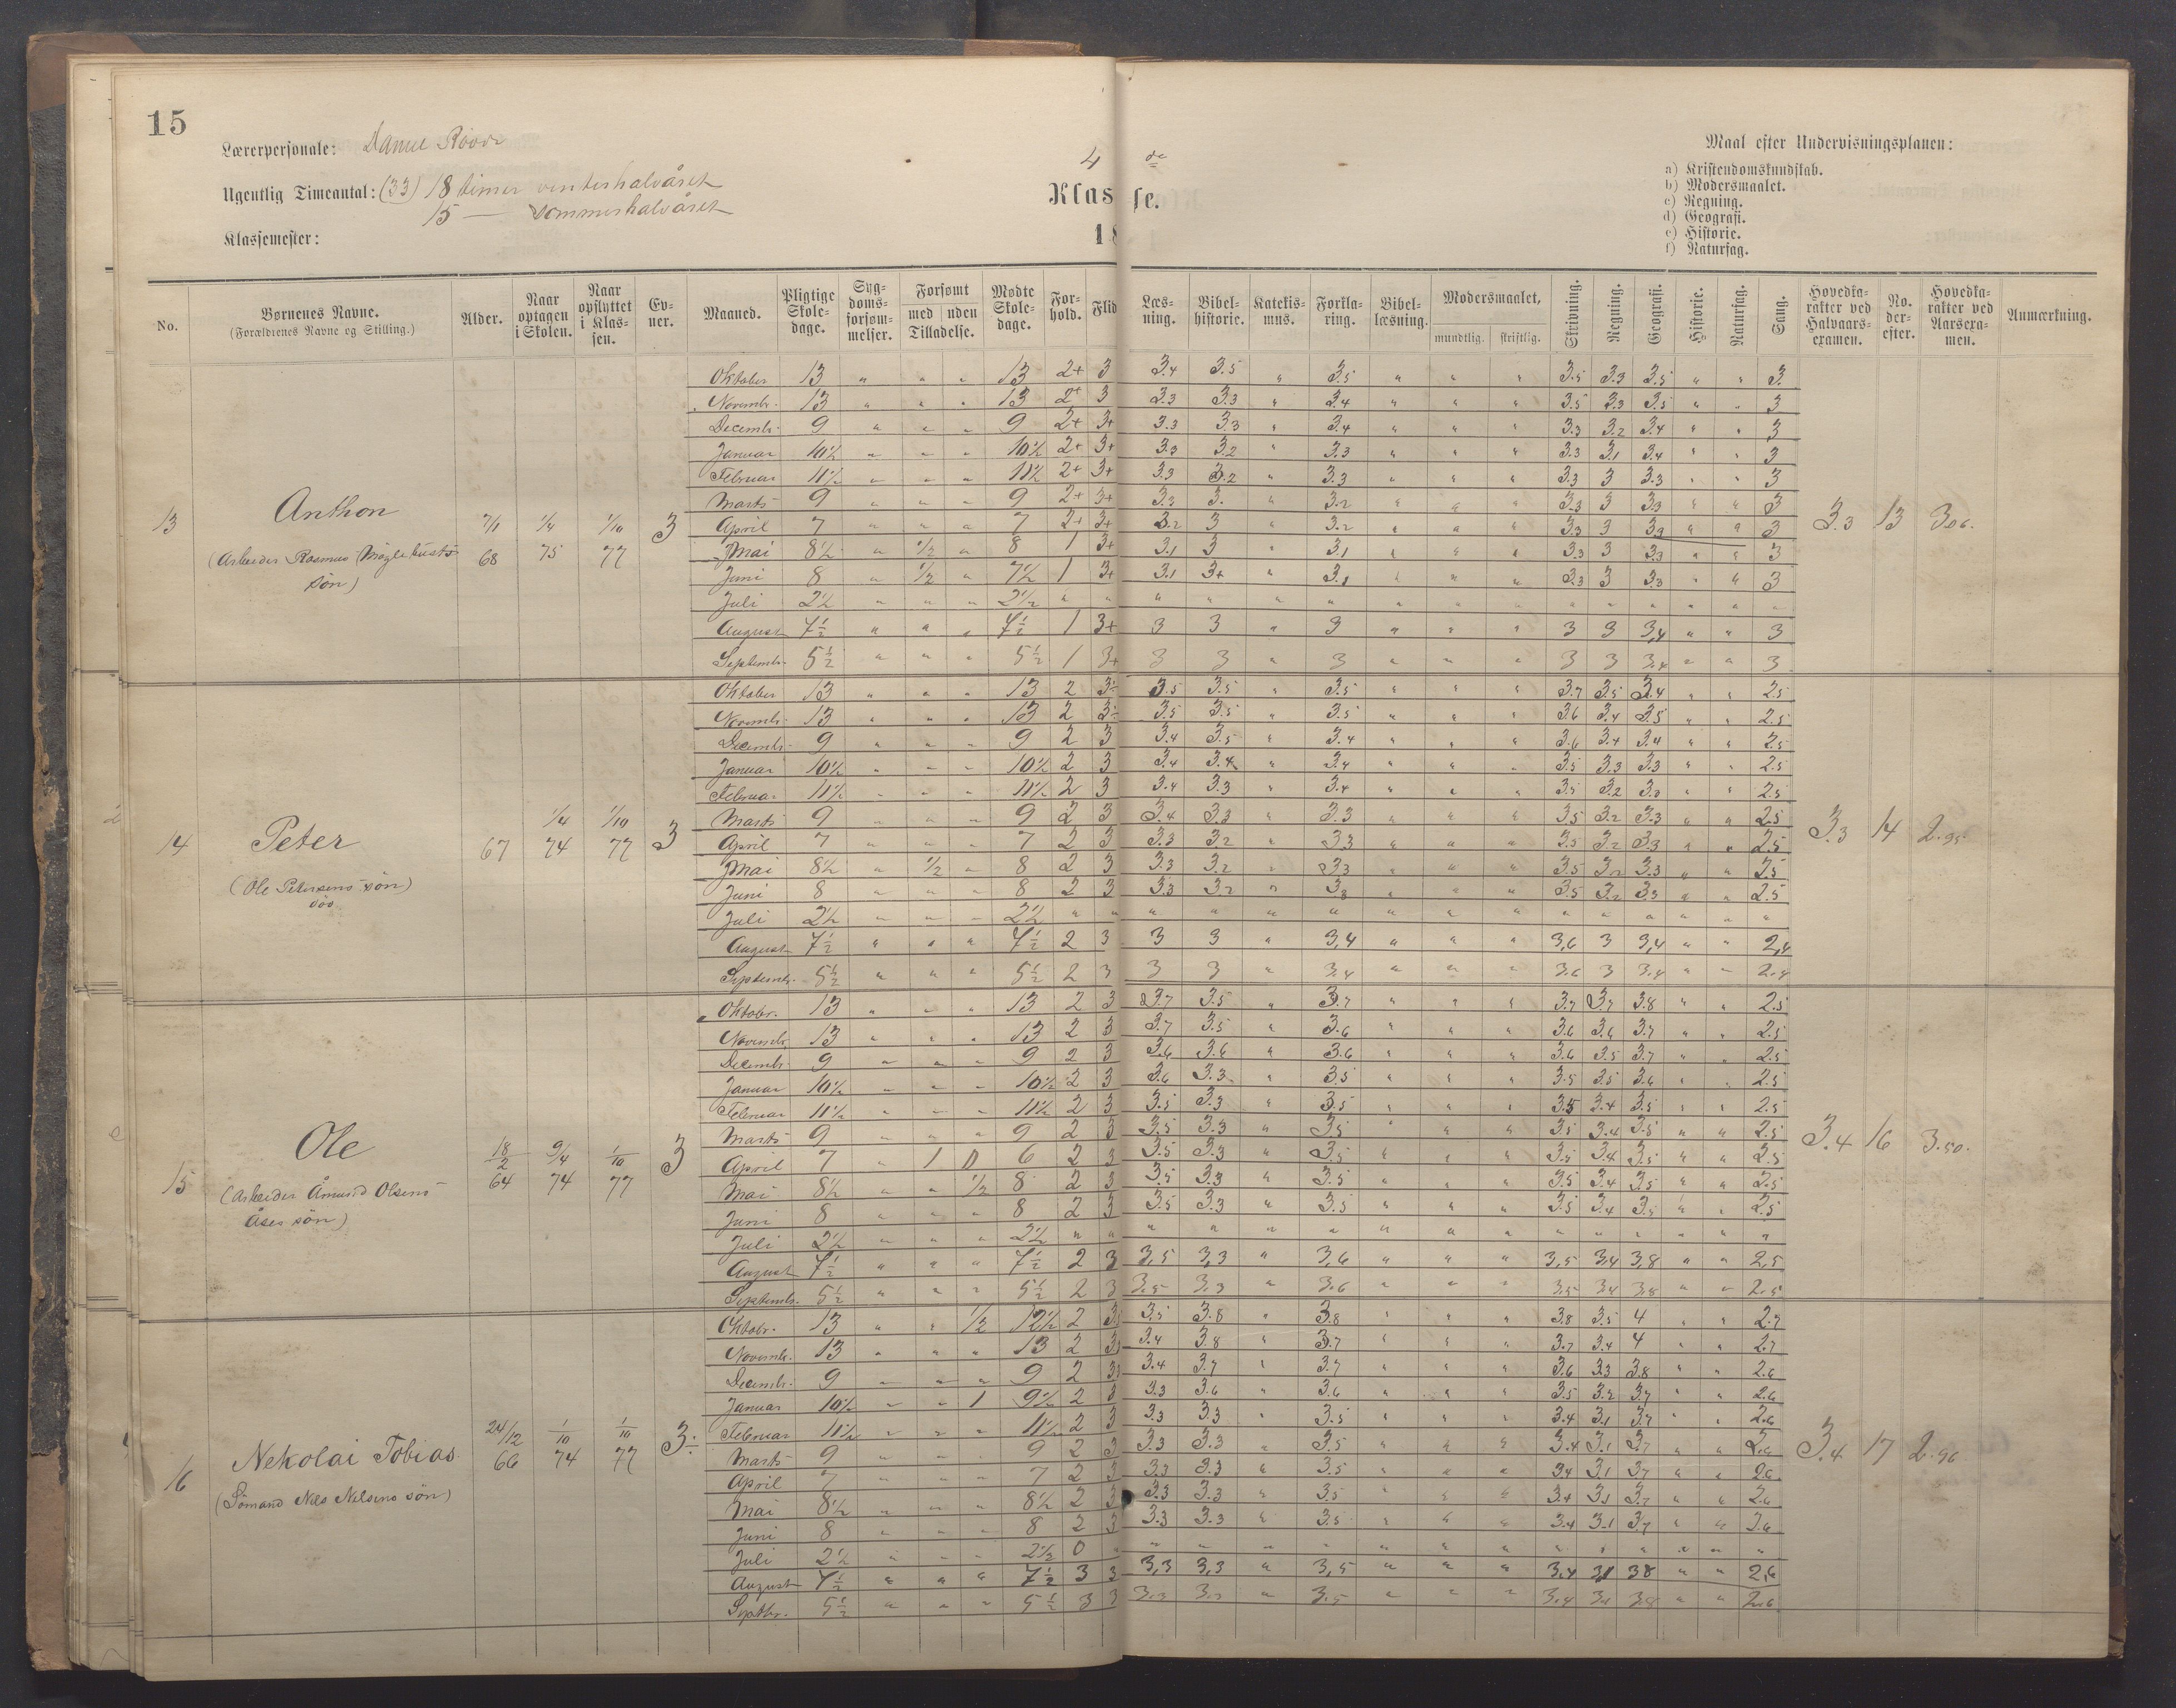 15
Lærerpersonale:
Ugentlig Timeantal: (33) 18 timer vinterhalvåret
15 — sommerhalvåret
Klassemester:
4 de
Klasse.
18
Maal efter Undervisningsplanen:
a) Kristendomskundskab.
b) Modersmaalet.
c) Regning.
d) Geografi.
e) Historie.
f) Naturfag.
No.
Børnenes Navne.
(Forældrenes Navne og Stilling.)
Alder.
Naar optagen i Skolen.
Naar opflyttet i Klassen.
Evner.
Maaned.
Pligtige Skoledage.
Sygdomsforsømmelser.
Forsømt med uden Tilladelse.
Mødte Skoledage.
Forhold.
Flid
Læsning.
Bibelhistorie.
Katekismus.
Forklaring.
Bibellæsning.
Modersmaalet, mundtlig. skriftlig.
Skrivning.
Regning.
Geografi.
Historie.
Naturfag.
Sang.
Hovedkarakter ved Halvaarsexamen.
No. derefter.
Hovedkarakter ved Aarsexamen.
Anmærkning.
13 Anthon 7/1 68 1/4 75 1/10 77 3
(Arbeider Rasmus
søn)
3.3 13 3.06.
Oktober 13 " " " 13 2+ 3 3.4 3.5 " 3.5 " " " 3.5 3.3 3.5 " " 3
Novembr. 13 " " " 13 2+ 3 3.3 3.3 " 3.4 " " " 3.5 3.3 3.5 " " 3
Decembr. 9 " " " 9 2+ 3+ 3.3 3.3 " 3.4 " " " 3.3 3.2 3.4 " " 3
Januar 10½ " " " 10½ 2+ 3+ 3.3 3.2 " 3.3 " " " 3.3 3.1 3.4 " " 3
Februar 11½ " " " 11½ 2+ 3+ 3.3 3.2 " 3.3 " " " 3.3 3 3.3 " " 3
Marts 9 " " " 9 2+ 3+ 3.3 3. " 3.2 " " " 3.3 3 3.3 " " 3
April 7 " " " 7 2+ 3+ 3.2 3 " 3.2 " " " 3.3 3 3.3 " " 3
Mai 8½ " ½ " 8 1 3+ 3.1 3 " 3.1 " " " 3.3 3 3.3 " " 3
Juni 8 " ½ " 7½ 1 3+ 3.1 3+ " 3.1 " " " 3.3 3 3.3 " " 3
Juli 2½ " " " 2½ " " " " " " " " " " " " " " "
August 7½ " " " 7½ 1 3+ 3 3 " 3 " " " 3 3 3,4 " " 3
Septembr. 5½ " " " 5½ 1 3+ 3 3 " 3 " " " 3 3 3.4 " " 3
14 Peter 67 1/4 74 1/10 77 3
(Ole Petersens søn)
3.3 14 2.95
Oktober 13 " " " 13 2 3÷ 3.5 3.5 " 3.5 " " " 3.7 3.5 3.4 " " 2.5
Novembr. 13 " " " 13 2 3÷ 3.5 3.5 " 3.5 " " " 3.6 3.4 3.5 " " 2.5
Decembr. 9 " " " 9 2 3 3.4 3.5 " 3.4 " " " 3.6 3.4 3.4 " " 2.5
Januar 10½ " " " 10½ 2 3 3.4 3.4 " 3.4 " " " 3.5 3.3 3.3 " " 2.5
Februar 11½ " " " 11½ 2 3 3.4 3.3 " 3.4 " " " 3.5 3.2 3.3 " " 2.5
Marts 9 " " " 9 2 3 3.4 3.3 " 3.3 " " " 3.5 3.2 3.3 " " 2.5
April 7 " " " 7 2 3 3.3 3.2 " 3.3 " " " 3.5 3.2 3.3 " " 2.5
Mai 8½ " ½ " 8 2 3 3.3 3.2 " 3.3 " " " 3.5 3.2 3.3 " " 2.5
Juni 8 " " " 8 2 3 3.3 3.2 " 3.3 " " " 3.5 3.2 3.3 " " 2.5
Juli 2½ " " " 2½ " " " " " " " " " " " " " " "
August 7½ " " " 7½ 2 3 3 3 " 3,4 " " " 3,6 3 3,4 " " 2,4
Septembr. 5½ " " " 5½ 2 3 3 3 " 3.4 " " " 3.6 3 3.4 " " 2.4
15 Ole 18/2 64 9/4 74 1/10 77 3
(Arbeider Åmund Olsens
Åses søn)
3.4 16 3.50.
Oktobr. 13 " " " 13 2 3 3.7 3.5 " 3.7 " " " 3.7 3.7 3.8 " " 2.5
Novembr. 13 " " " 13 2 3 3.7 3.5 " 3.6 " " " 3.6 3.6 3.7 " " 2.5
Decembr. 9 " " " 9 2 3 3.6 3.6 " 3.6 " " " 3.6 3.5 3.7 " " 2.5
Januar 10½ " " " 10½ 2 3 3.6 3.3 " 3.5 " " " 3.5 3.5 3.6 " " 2.5
Februar 11½ " " " 11½ 2 3 3.5 3.3 " 3.5 " " " 3.5 3.4 3.5 " " 2.5
Marts 9 " " " 9 2 3 3.5 3.3 " 3.5 " " " 3.5 3.4 3.5 " " 2.5
April 7 " 1 0 6 2 3 3.5 3.3 " 3.5 " " " 3.5 3.4 3.5 " " 2.5
Mai 8½ " " ½ 8 2 3 3.5 3.3 " 3.5 " " " 3.5 3.4 3.5 " " 2.5
Juni 8 " " " 8 2 3 3.5 3.3 " 3.5 " " " 3.5 3.4 3.5 " " 2.5
Juli 2½ " " " 2½ " " " " " " " " " " " " " " "
August 7½ " " " 7½ 2 3 3,5 3,3 " 3,6 " " " 3,5 3,4 3,8 " " 2,5
Septembr. 5½ " " " 5½ 2 3 3.5 3.3 " 3.6 " " " 3.5 3.4 3.8 " " 2.5
16 Nekolai Tobias. 24/12 66 1/10 74 1/10 77 3÷
(Sömand Nils Nilsens sön)
3.4 17 2.96
Oktobr. 13 " " ½ 12½ 2 3 3.5 3.8 " 3.8 " " " 3.8 3.5 4 " " 2.7
Novembr. 13 " " " 13 2 3 3.4 3.8 " 3.7 " " " 3.7 3.4 4 " " 2.7
Decembr. 9 " " " 9 2 3 3.4 3.7 " 3.7 " " " 3.6 3.3 3.8 " " 2.6
Januar 10½ " " 1 9½ 2 3 3.3 3.6 " 3.6 " " " 3.5 3.2 3.7 " " 2.6
Februar 11½ " " " 11½ 2 3 3.3 3.3 " 3.5 " " " 3.4 3.1 3.7 " " 2.6
Marts 9 " " " 9 2 3 3.3 3.3 " 3.5 " " " 3.4 3.1 3.7 " " 2.6
April 7 " " " 7 2 3 3.3 3.3 " 3.5 " " " 3.4 3.1 3.7 " " 2.6
Mai 8½ " " " 8½ 2 3 3.3 3.3 " 3.5 " " " 3.4 3.1 3.7 " " 2.6
Juni 8 " " " 8 2 3 3.3 3.3 " 3.5 " " " 3.4 3.1 3.7 " " 2.6
Juli 2½ " " " 2½ 0 " " " " " " " " " " " " " "
August 7½ " " " 7½ 3 3 3,3 3,3 " 3,5 " " " 3,4 3,1 3,8 " " 2,6
Septbr. 5½ " " " 5½ 3 3 3.3 3.3 " 3.5 " " " 3.4 3.1 3.8 " " 2.6